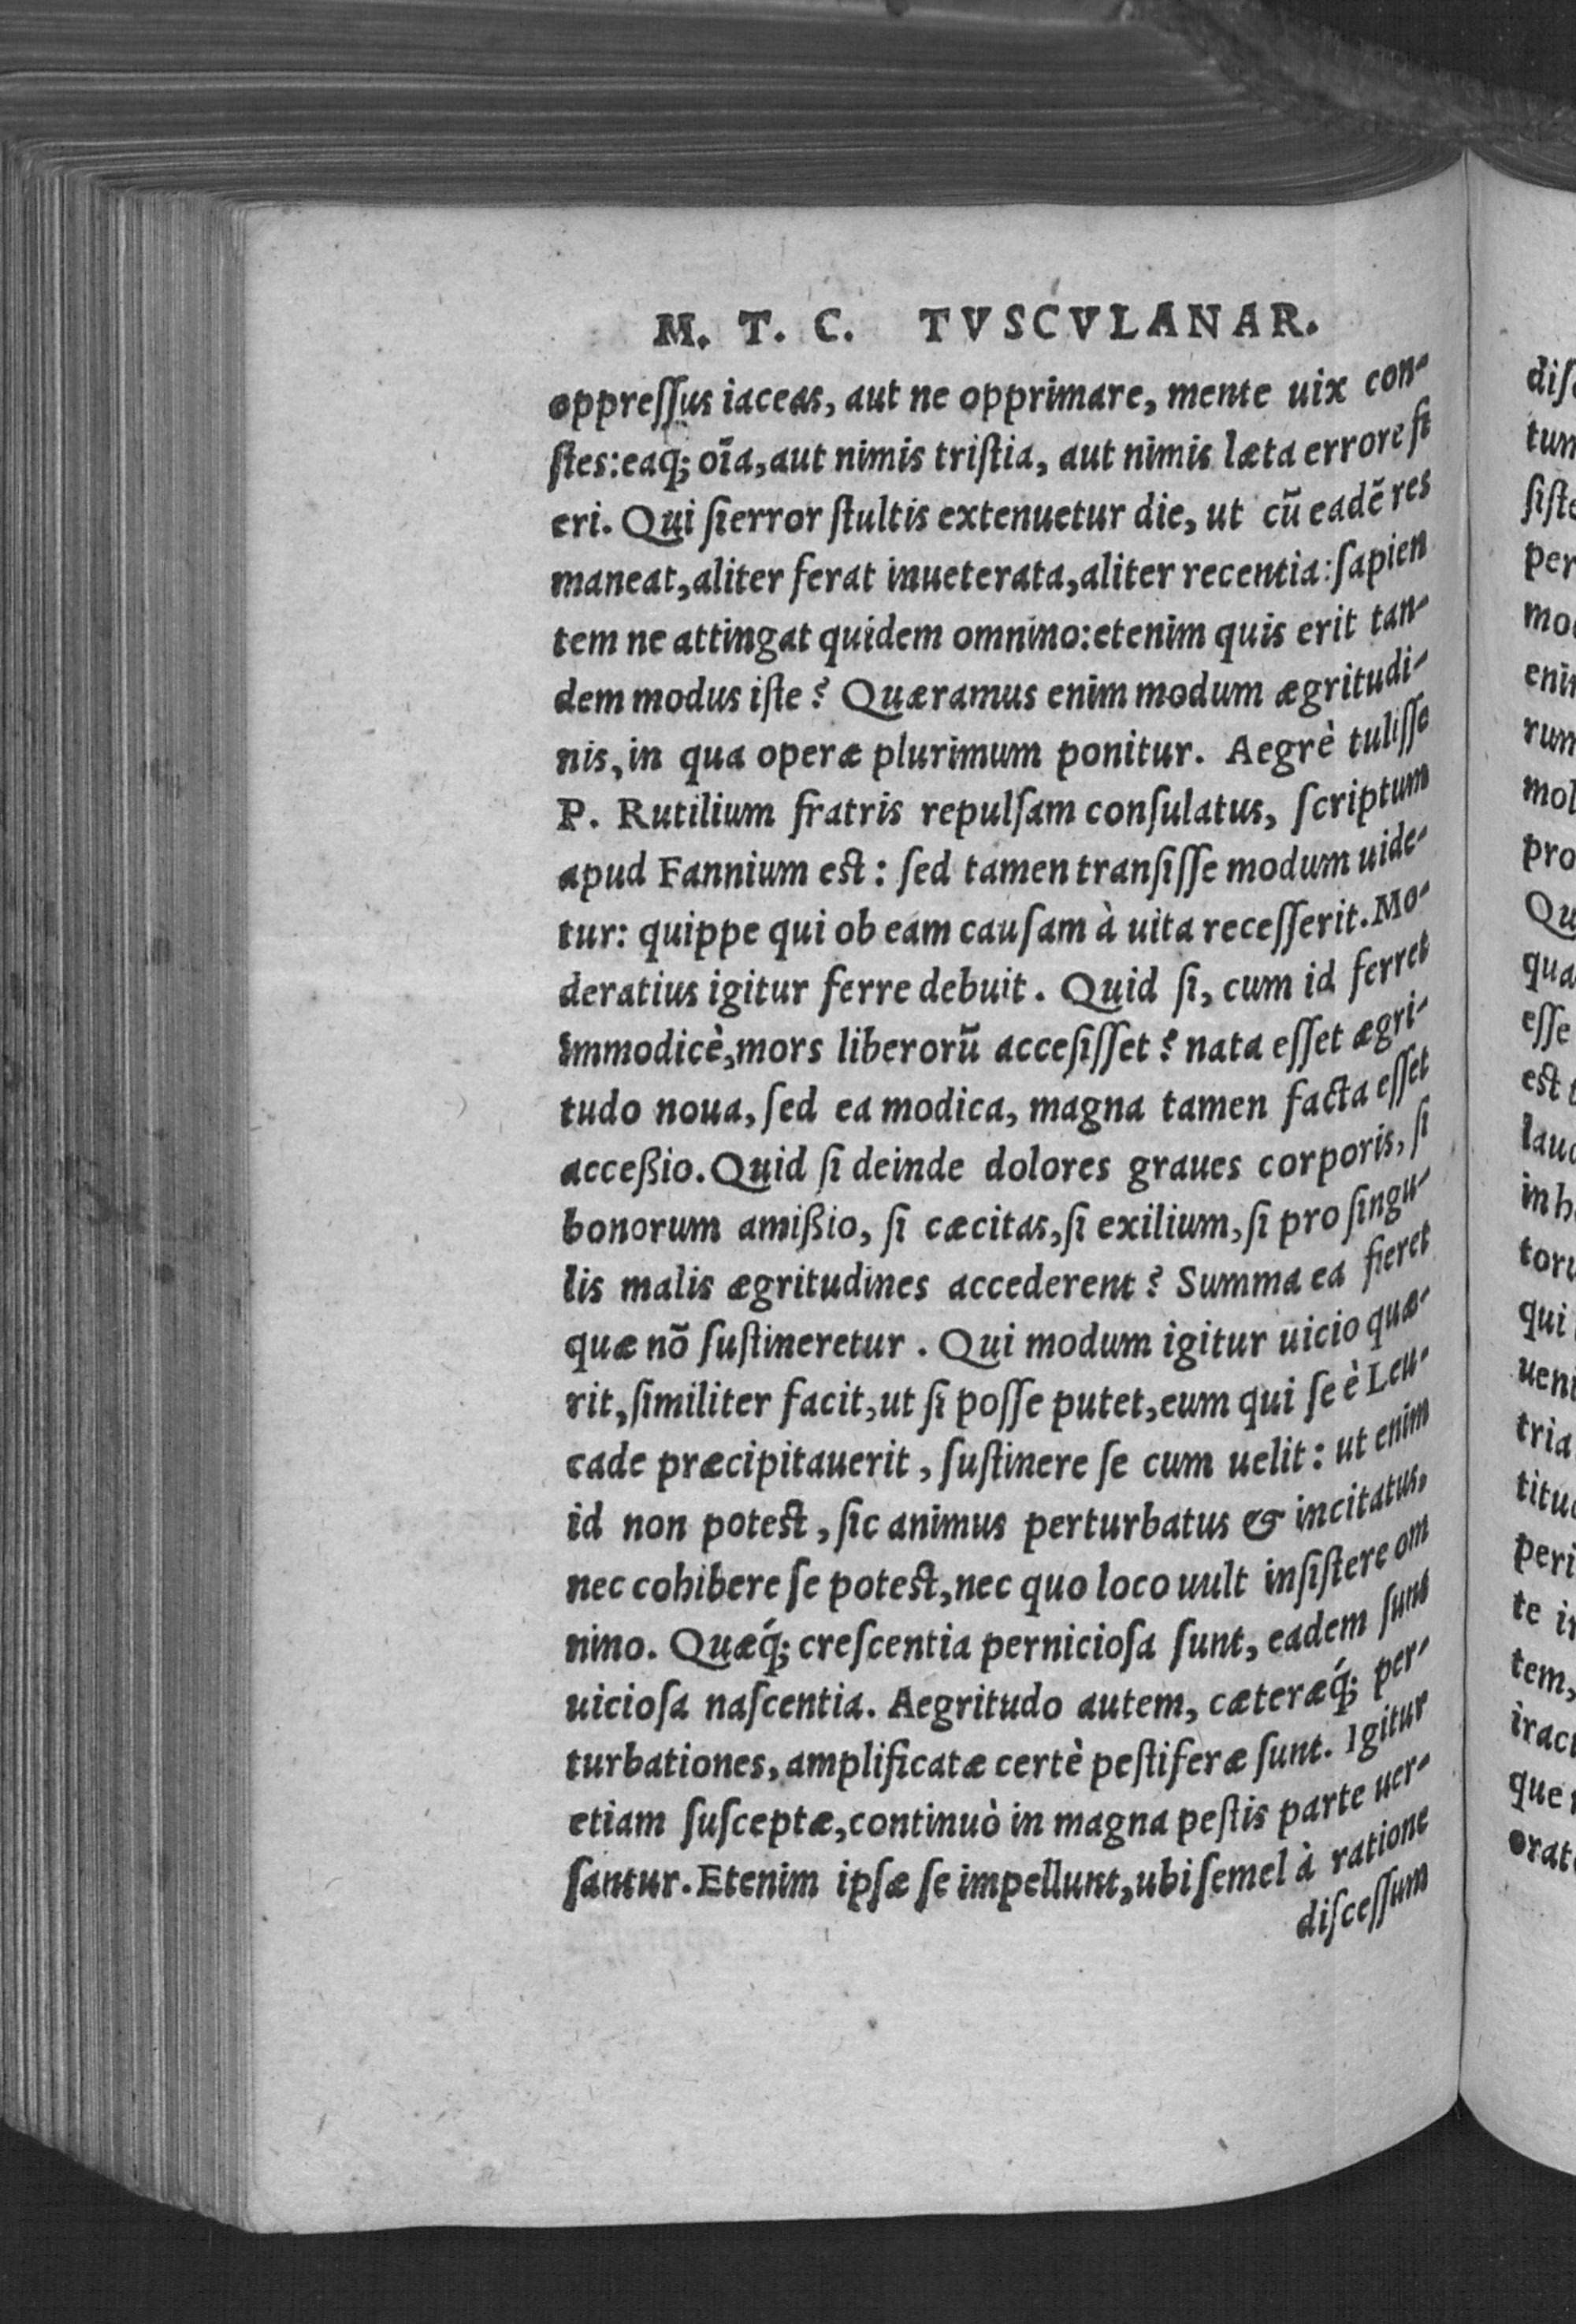 M. T. C. TVSCVLANAR.
oppreſſus iaceas, aut ne opprimare, mente uix con-
ſtes: eaq́; oīa, aut nimis triſtia, aut nimis læta errore fi
eri. Qui ſi error ſtultis extenuetur die, ut cū eadē res
maneat, aliter ferat inueterata, aliter recentia: ſapien
tem ne attingat quidem omnino: etenim quis erit tan-
dem modus iſte? Quæramus enim modum ægritudi-
nis, in qua operæ plurimum ponitur. Aegrè tuliſſe
P. Rutilium fratris repulſam conſulatus, ſcriptum
apud Fannium est: ſed tamen tranſiſſe modum uide-
tur: quippe qui ob eam cauſam à uita receſſerit. Mo-
deratius igitur ferre debuit. Quid ſi, cum id ferret
immodicè, mors liberorū acceſiſſet? nata eſſet ægri-
tudo noua, ſed ea modica, magna tamen facta eſſet
acceßio. Quid ſi deinde dolores graues corporis, ſi
bonorum amißio, ſi cæcitas, ſi exilium, ſi pro ſingu-
lis malis ægritudines accederent? Summa ea fieret
quæ nō ſuſtineretur. Qui modum igitur uicio quæ-
rit, ſimiliter facit, ut ſi poſſe putet, eum qui ſe è Leu-
cade præcipitauerit, ſuſtinere ſe cum uelit: ut enim
id non potest, ſic animus perturbatus & incitatus,
nec cohibere ſe potest, nec quo loco uult inſiſtere om
nino. Quæq́; creſcentia pernicioſa ſunt, eadem ſunt
uicioſa naſcentia. Aegritudo autem, cæteræq́; per-
turbationes, amplificatæ certè peſtiferæ ſunt. Igitur
etiam ſuſceptæ, continuò in magna peſtis parte uer-
ſantur. Etenim ipſæ ſe impellunt, ubi ſemel à ratione
diſceſſum